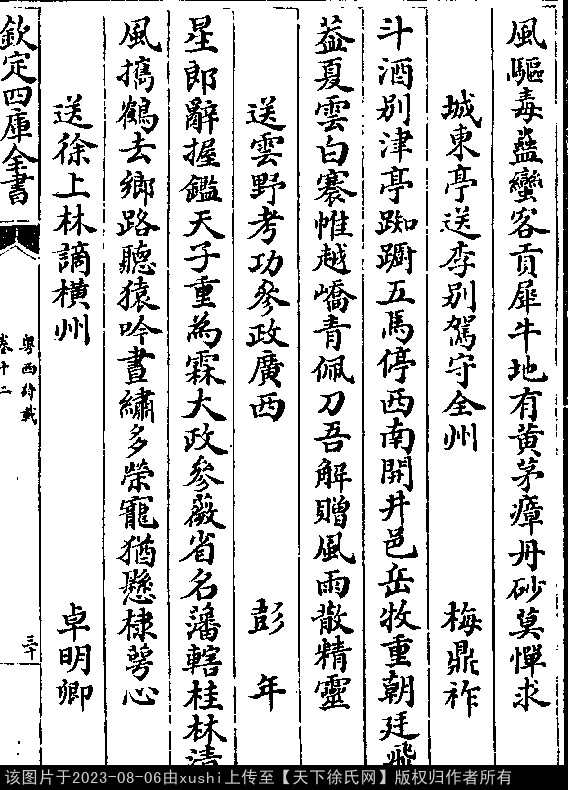 風驅毒蠱蠻客貢犀牛地有黄茅瘴丹砂莫憚求
城東亭送李别駕守全州 梅鼎祚
斗酒别津亭踟蹰五馬停西南開井邑岳牧重朝廷飛
葢夏雲白褰帷越嶠青佩刀吾解贈風雨散精靈
送雲野考功叅政廣西 彭年
星郎辭握鑑天子重為霖大政叅薇省名藩轄桂林清
風攜鶴去鄉路聽猿吟晝繡多榮寵猶懸棣萼心
送徐上林謫横州 卓明卿
欽定四庫全書
粤西詩載
卷十二
三十
该图片于2023-08-06由xushi上传至【天下徐氏网】版权归作者所有